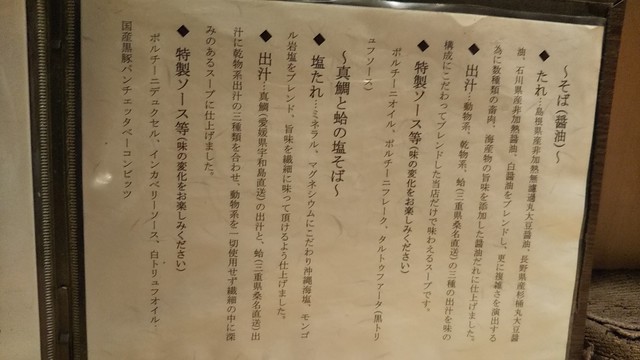 ～そば(醤油)～
◆ たれ…島根県産非加熱無濾過丸大豆醤油、長野県産杉桶丸大豆醤
油、石川県産非加熱醤油、白醤油をブレンドし、更に複雑さを演出する
為に数種類の畜肉、海産物の旨味を添加した醤油だれに仕上げました。
◆ 出汁…動物系、乾物系、蛤(三重県桑名直送)の三種の出汁を味の
構成にこだわってブレンドした当店だけで味わえるスープです。
◆ 特製ソース等(味の変化をお楽しみください)
ポルチーニオイル、ポルチーニフレーク、タルトゥファータ(黒トリ
ュフソース)
～真鯛と蛤の塩そば～
◆ 塩たれ…ミネラル、マグネシウムにこだわり沖縄海塩、モンゴ
ル岩塩をブレンド、旨味を繊細に味って頂けるよう仕上げました。
◆ 出汁…真鯛(愛媛県宇和島直送)の出汁と、蛤(三重県桑名直送)出
汁に乾物系出汁の三種類を合わせ、動物系を一切使用せず繊細の中に深
みのあるスープに仕上げました。
◆ 特製ソース等(味の変化をお楽しみください)
ポルチーニデュクセル、インカベリーソース、白トリュフオイル
国産黒豚パンチェッタベーコンビッツ